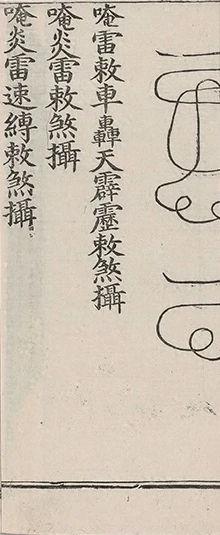 唵雷敕車轟天霹靂敕煞攝
唵炎雷敕煞攝
唵炎雷速縛敕煞攝